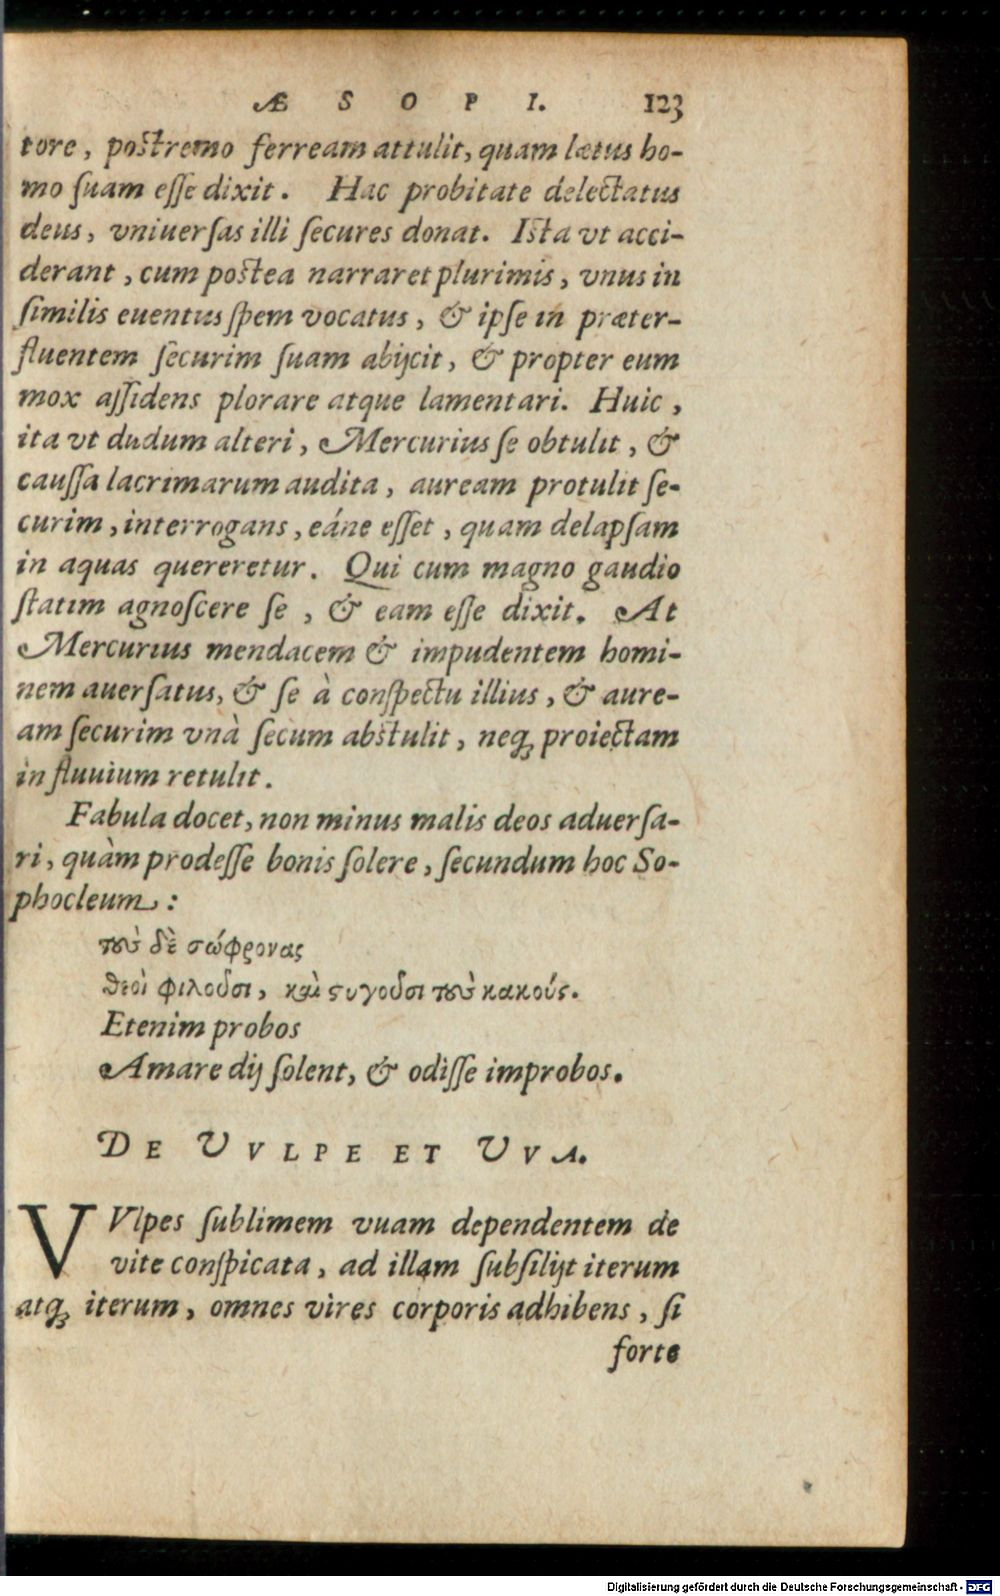 ÆSOPI. 123
tore, postremo ferream attulit, quam lætus ho-
mo ſuam eſſe dixit. Hac probitate delectatus
deus, vniuerſas illi ſecures donat. Iſta vt acci-
derant, cum poſtea narraret plurimis, vnus in
ſimilis euentus ſpem vocatus, & ipſe in præter-
fluentem ſecurim ſuam abijcit, & propter eum
mox aſſidens plorare atque lamentari. Huic,
ita vt dudum alteri, Mercurius ſe obtulit, &
cauſſa lacrimarum audita, auream protulit ſe-
curim, interrogans, eáne eſſet, quam delapſam
in aquas quereretur. Qui cum magno gaudio
ſtatim agnoſcere ſe, & eam eſſe dixit. At
Mercurius mendacem & impudentem homi-
nem auerſatus, & ſe à conſpectu illius, & aure-
am ſecurim vnà ſecum abſtulit, neq; proiectam
in fluuium retulit.
Fabula docet, non minus malis deos aduerſa-
ri, quàm prodeſſe bonis ſolere, ſecundum hoc So-
phocleum:
τοὺς δὲ σώφρονας
θεοὶ φιλοῦσι, καὶ στυγοῦσι τοὺς κακούς.
Etenim probos
Amare dij ſolent, & odiſſe improbos.
DE VVLPE ET VVA.
VVlpes ſublimem vuam dependentem de
vite conſpicata, ad illam ſubſilijt iterum
atq; iterum, omnes vires corporis adhibens, ſi
forte
Digitalisierung gefördert durch die Deutsche Forschungsgemeinschaft - DFG